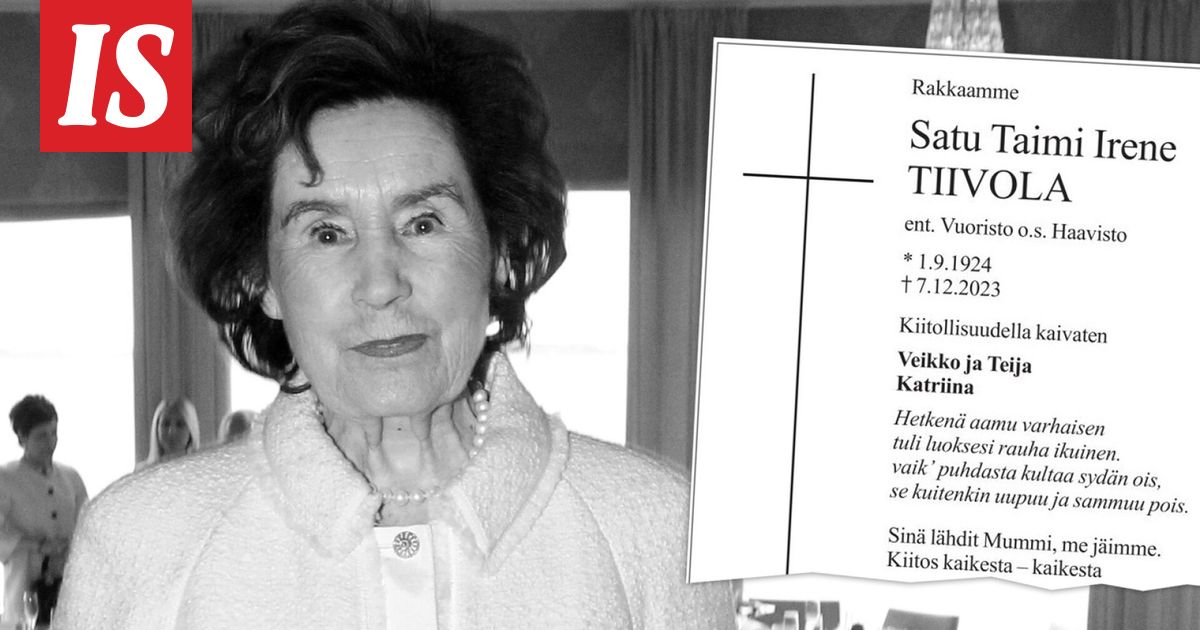 IS
Rakkaamme
Satu Taimi Irene
TIIVOLA
ent. Vuoristo o.s. Haavisto
* 1.9.1924
† 7.12.2023
Kiitollisuudella kaivaten
Veikko ja Teija
Katriina
Hetkenä aamu varhaisen
tuli luoksesi rauha ikuinen.
vaik’ puhdasta kultaa sydän ois,
se kuitenkin uupuu ja sammuu pois.
Sinä lähdit Mummi, me jäimme.
Kiitos kaikesta – kaikesta